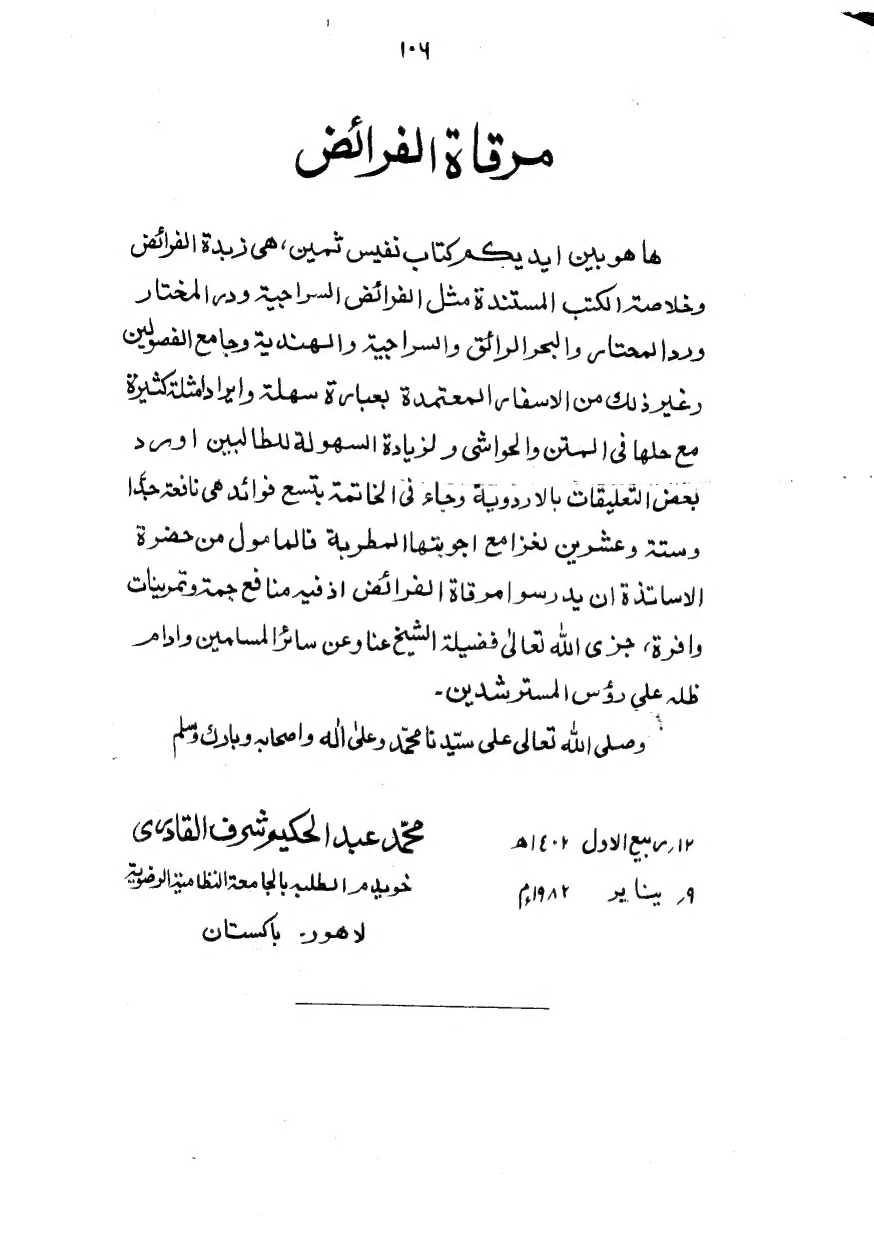 ۱۰۶
مرقاة الفرائض
ها هو بين ايديكم كتاب نفيس ثمين، هى زبدة الفرائض
وخلاصة الكتب المستندة مثل الفرائض السراجية ودر المختار
ورد المحتار والبحر الرائق والسراجية والهندية وجامع الفصولين
وغير ذلك من الاسفار المعتمدة بعبارة سهلة وايراد امثلة كثيرة
مع حلها فى المتن والحواشى ولزيادة السهولة للطالبين اورد
بعض التعليقات بالاردوية وجاء فى الخاتمة بتسع فوائد هى نافعة جدًّا
وستة وعشرين لغزا مع اجوبتها المطربة فالمامول من حضرة
الاساتذة ان يدرسوا مرقاة الفرائض اذ فيه منافع جمة وتمرينات
وافرة، جزى الله تعالىٰ فضيلة الشيخ عنا وعن سائر المسلمين وادام
ظله على رؤس المسترشدين۔
وصلى الله تعالى على سيّدنا محمّد وعلىٰ اٰله واصحابه وبارك وسلم
۱۲؍ ربيع الاول ۱٤۰۲ھ
محمّد عبد الحكيم شرف القادرى
۹؍ يناير ۱۹۸۲ءم
خويدم الطلبه بالجامعة النظامية الرضوية
لاهور۔ باكستان